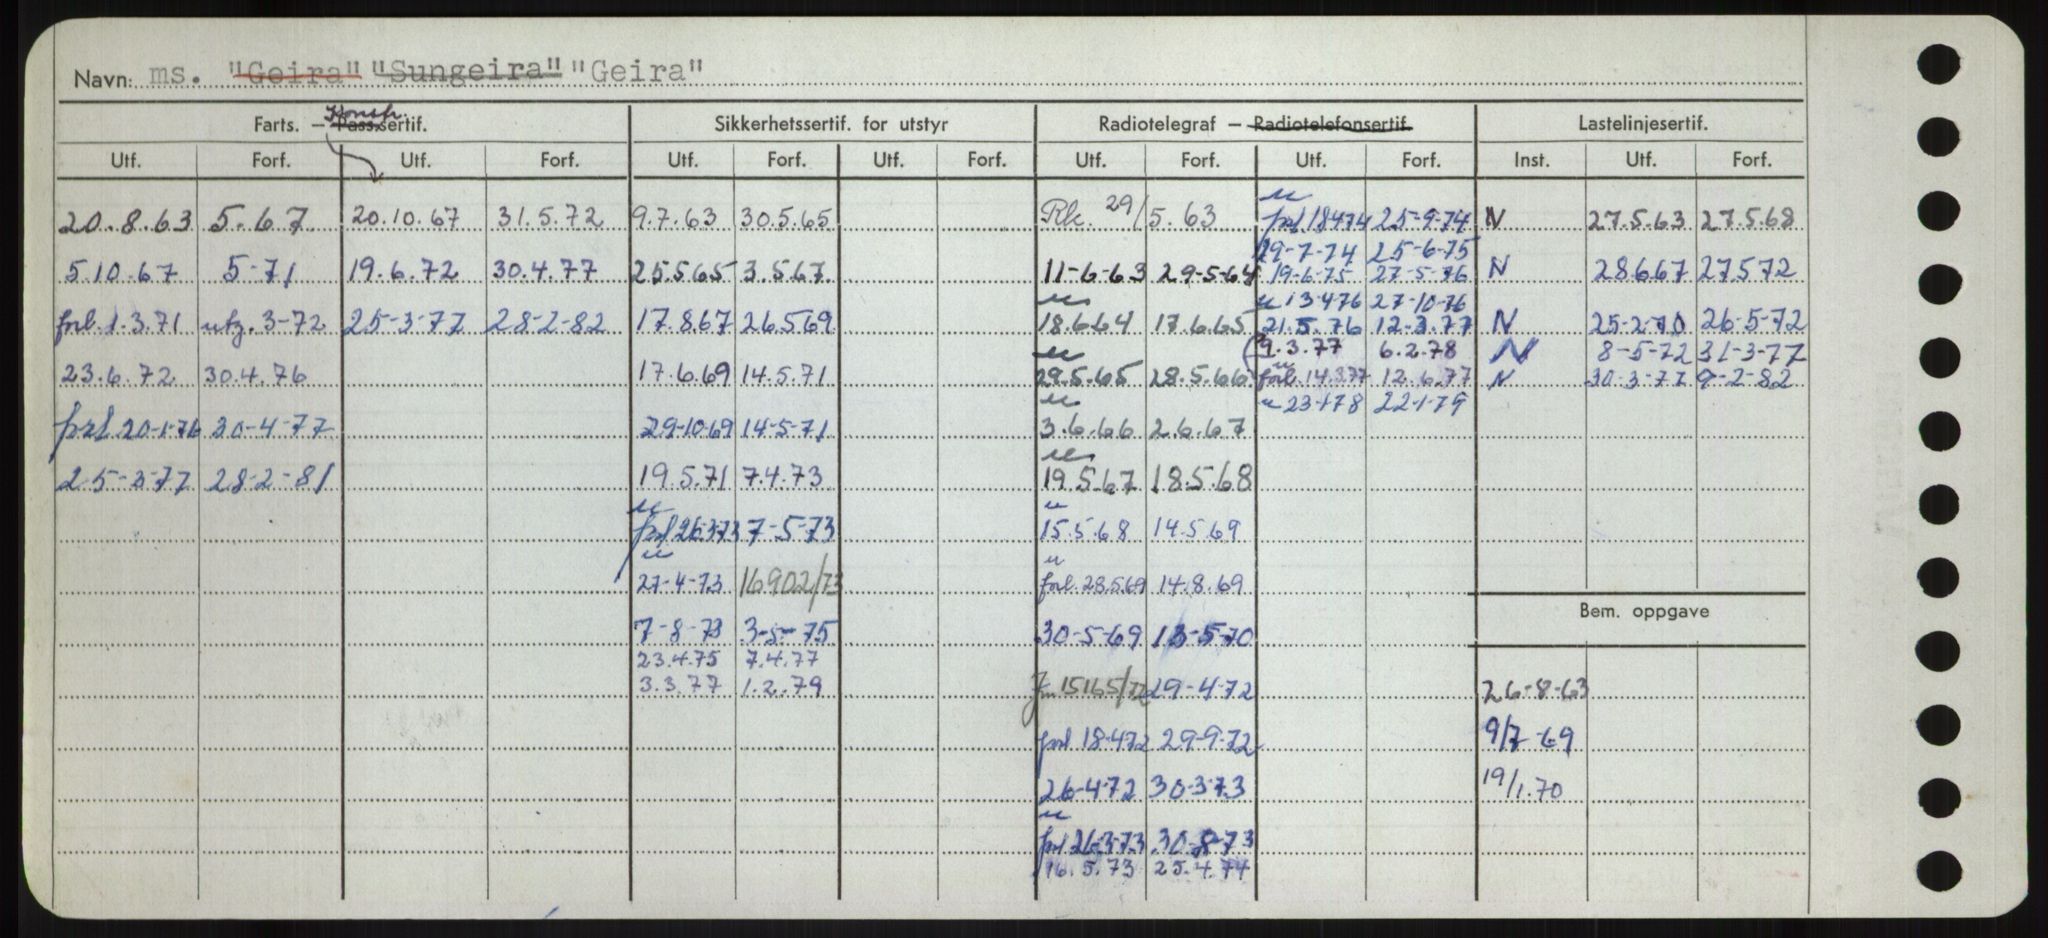 Navn: ms. "Geira" "Sungeira" "Geira"
Konstr.
Farts. — Pass.sertif. Sikkerhetssertif. for utstyr Radiotelegraf — Radiotelefonsertif. Lastelinjesertif.
Utf. Forf. Utf. Forf. Utf. Forf. Utf. Forf. Utf. Forf. Utf. Forf. Inst. Utf. Forf.
20.8.63 5.67 20.10.67 31.5.72 9.7.63 30.5.65 Rk. 29/5.63 u frl 18474 25-9-74 N 27.5.63 27.5.68
29-7-74 25-6-75
5.10.67 5-71 19.6.72 30.4.77 25.5.65 3.5.67 11-6-63 29-5-64 19-6-75 27-5-76 N 28.6.67 27.5.72
u 13476 27-10-76
forl. 1.3.71 utg. 3-72 25-3-77 28-2-82 17.8.67 26.5.69 u 18.6.64 17.6.65 21.5.76 12-3.77 N 25-2-70 26-5-72
9.3.77 6.2.78 N 8-5-72 31-3-77
23.6.72 30.4.76 17.6.69 14.5.71 u 29.5.65 28.5.66 u forl. 14.3.77 12.6.77 N 30-3-77 9-2-82
u 23-1-78 22-1-79
frl 20-1-76 30-4-77 29-10-69 14-5-71 u 3.6.66 2.6.67
25-3-77 28-2-81 19.5.71 7.4.73 u 19.5.67 18.5.68
u frl 26-3-73 7-5-73 u 15.5.68 14.5.69
u 27-4-73 16902/73 u forl. 28.5.69 14.8.69
Bem. oppgave
7-8-73 3-5-75 30-5-69 13-5-70
23.4.75 7.4.77
3.3.77 1.2.79 Jnr 15165/72 29-4-72 26-8-63
frl 18-4-72 29-9-72 9/7-69
26-4-72 30-3-73 19/1.70
u frl 26-3-73 30-8-73
16.5.73 25.4.74